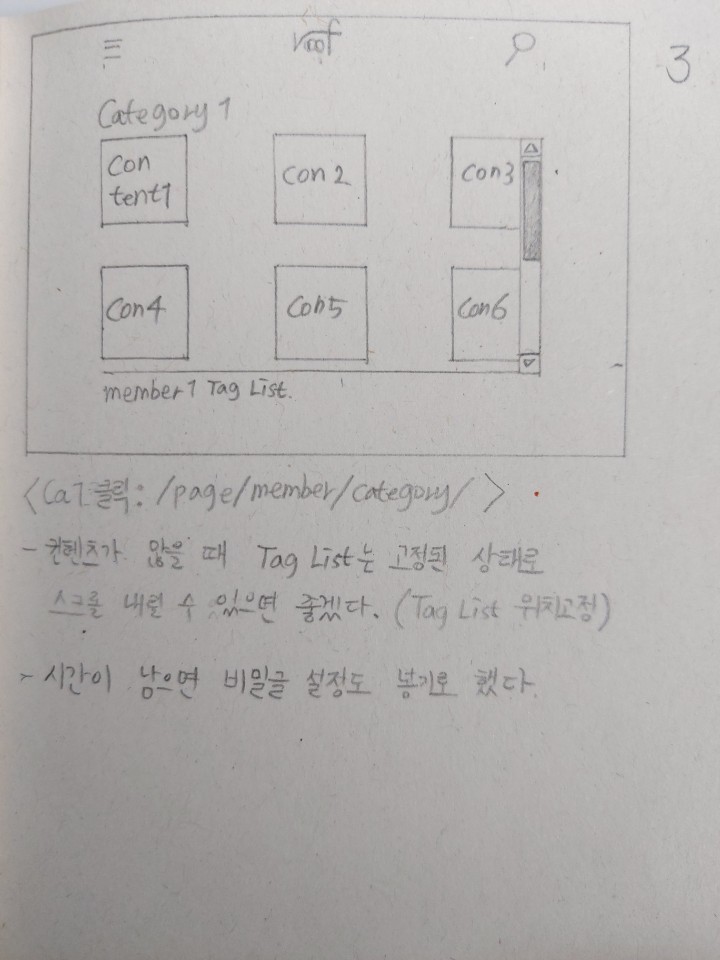 3
Vroof
Category 1
Con
tent1
Con 2
Con3
Con4
Con5
Con6
member1 Tag List.
<CaT클릭: /page/member/category/>
- 컨텐츠가 많을 때 Tag List는 고정된 상태로
스크롤 내릴 수 있으면 좋겠다. (Tag List 위치고정)
- 시간이 남으면 비밀글 설정도 넣기로 했다.